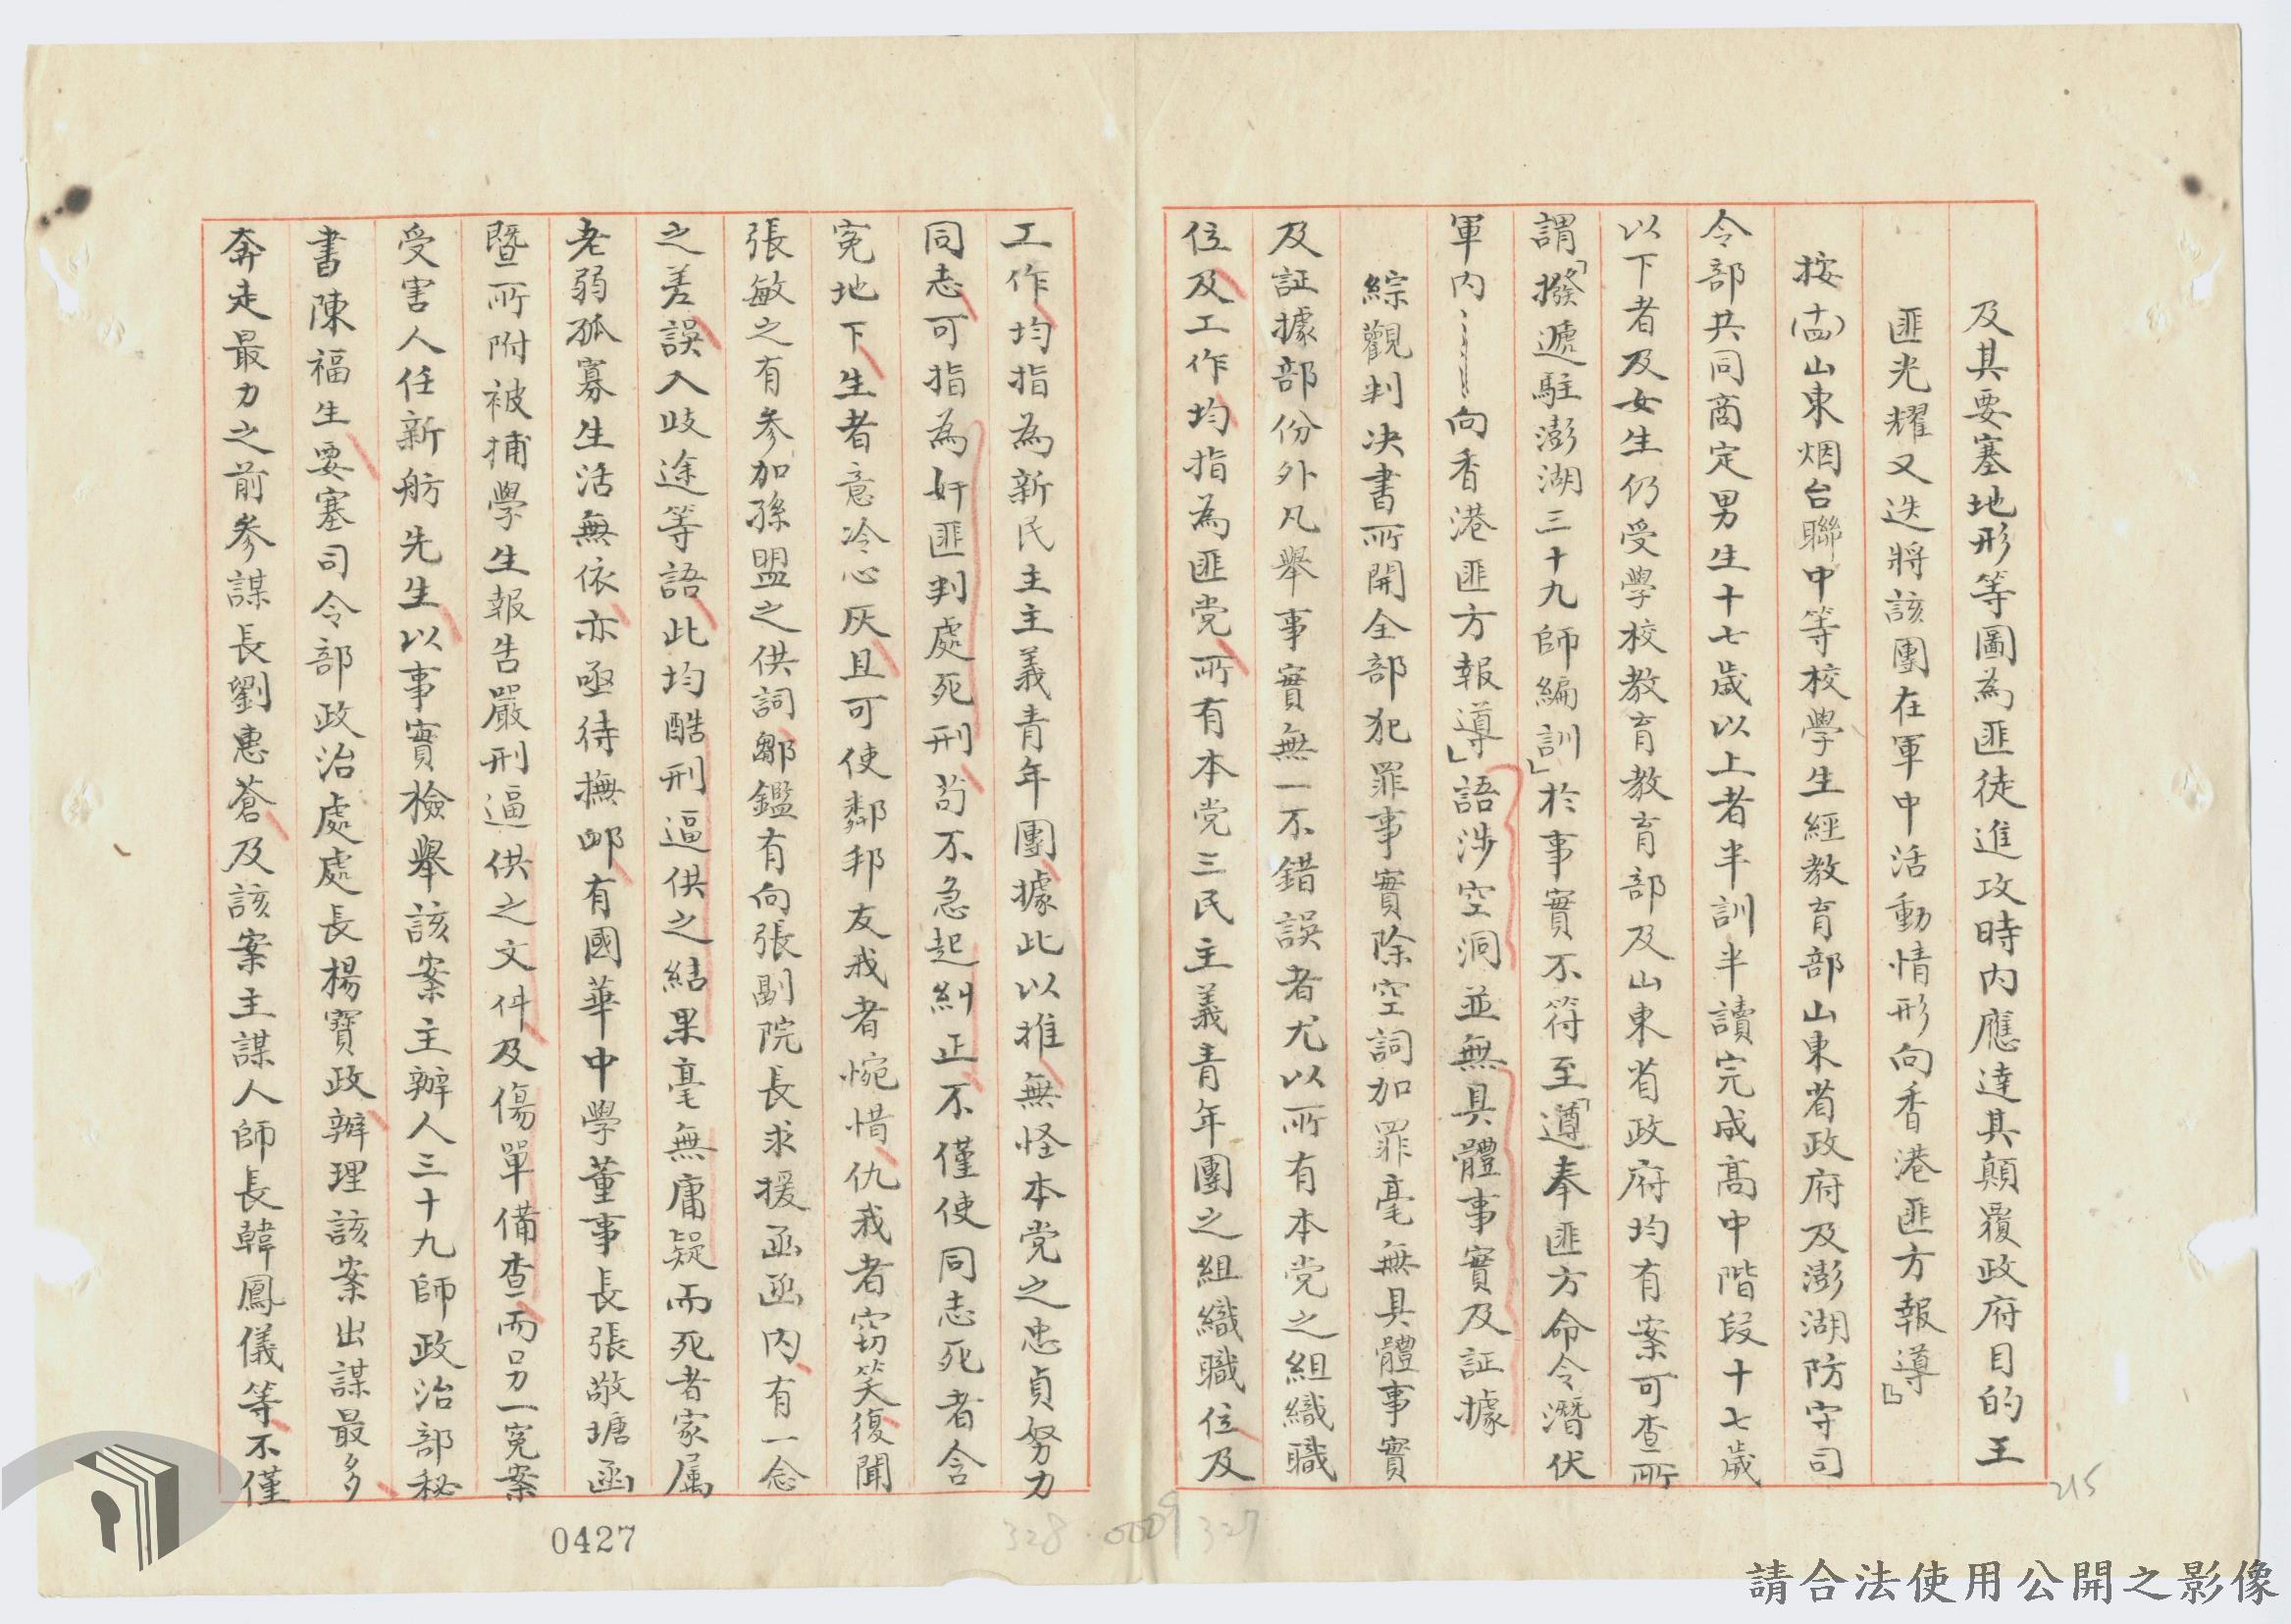 及其要塞地形等圖為匪徒進攻時內應達其顛覆政府目的王
匪光耀又迭將該團在軍中活動情形向香港匪方報導』
按(十四)山東烟台聯中等校學生經教育部山東省政府及澎湖防守司
令部共同商定男生十七歲以上者半訓半讀完成高中階段十七歲
以下者及女生仍受學校教育教育部及山東省政府均有案可查所
謂「撥遞駐澎湖三十九師編訓」於事實不符至「遵奉匪方命令潛伏
軍內……向香港匪方報導」語涉空洞並無具體事實及証據
綜觀判决書所開全部犯罪事實除空詞加罪毫無具體事實
及証據部份外凡舉事實無一不錯誤者尤以所有本党之組織職
位及工作均指為匪党所有本党三民主義青年團之組織職位及
工作均指為新民主主義青年團據此以推無怪本党之忠貞努力
同志可指為奸匪判處死刑苟不急起糾正不僅使同志死者含
冤地下生者意冷心灰且可使鄰邦友我者惋惜仇我者窃笑復聞
張敏之有參加孫盟之供詞鄒鑑有向張副院長求援函函內有一念
之差誤入歧途等語此均酷刑逼供之結果毫無庸疑而死者家属
老弱孤寡生活無依亦亟待撫卹有國華中學董事長張敬塘函
暨所附被捕學生報告嚴刑逼供之文件及傷單備查而另一冤案
受害人任新舫先生以事實檢舉該案主辦人三十九師政治部秘
書陳福生要塞司令部政治處處長楊寶政辦理該案出謀最多
奔走最力之前參謀長劉惠蒼及該案主謀人師長韓鳳儀等不僅
215
328
0009
327
0427
請合法使用公開之影像